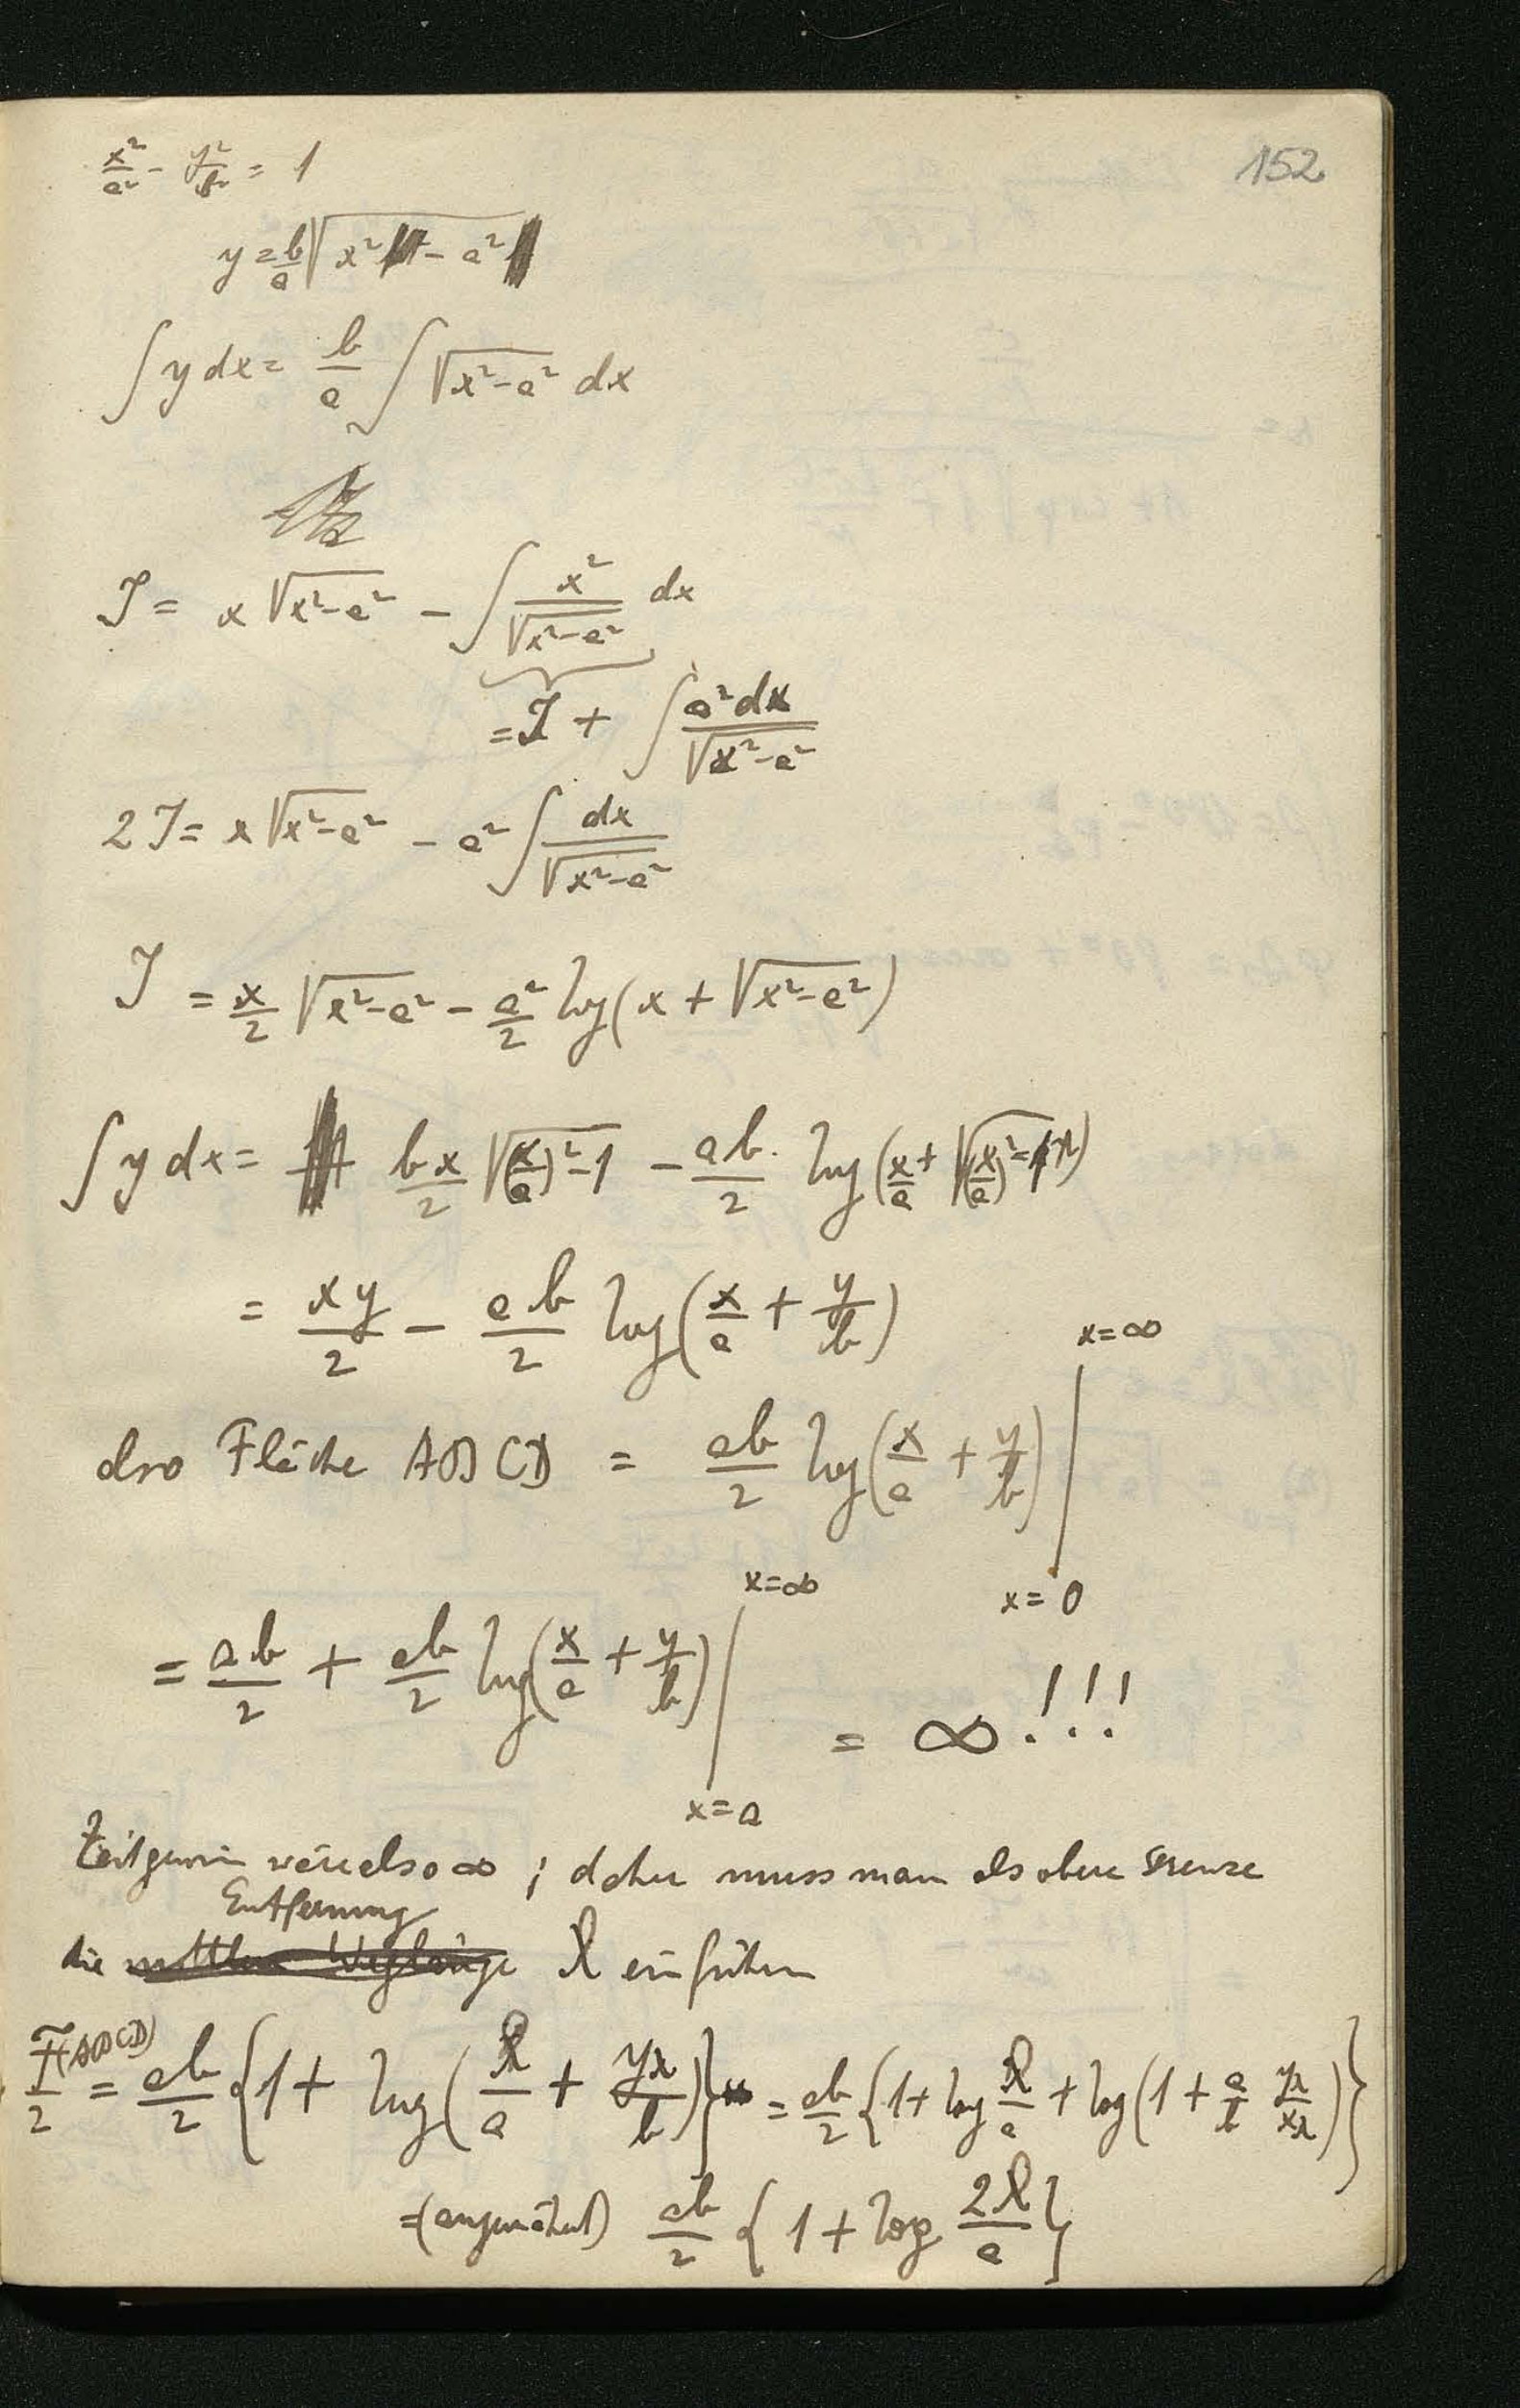 152
x²/a² - y²/b² = 1
y = b/a √(x² - a²)
∫ y dx = b/a ∫ √(x²-a²) dx
J = x √(x²-a²) - ∫ x²/√(x²-a²) dx
= J + ∫ a²dx/√(x²-a²)
2J = x √(x²-a²) - a² ∫ dx/√(x²-a²)
J = x/2 √(x²-a²) - a²/2 log(x + √(x²-a²))
∫ y dx = bx/2 √((x/a)²-1) - ab/2 log(x/a + √((x/a)²-1))
= xy/2 - ab/2 log(x/a + y/b)
also Fläche ABCD = ab/2 log(x/a + y/b) | x=∞ x=0
= ab/2 + ab/2 log(x/a + y/b) | x=∞ x=a = ∞!!!
Zeitgewinn wäre also ∞ ; daher muss man als obere Grenze
Entfernung
die mittlere Weglänge einführen
F(ABCD)/2 = ab/2 {1 + log( /a + /b)} = ab/2 {1 + log /a + log(1 + a/b )}
=(angenähert) ab/2 {1 + log 2 /a}